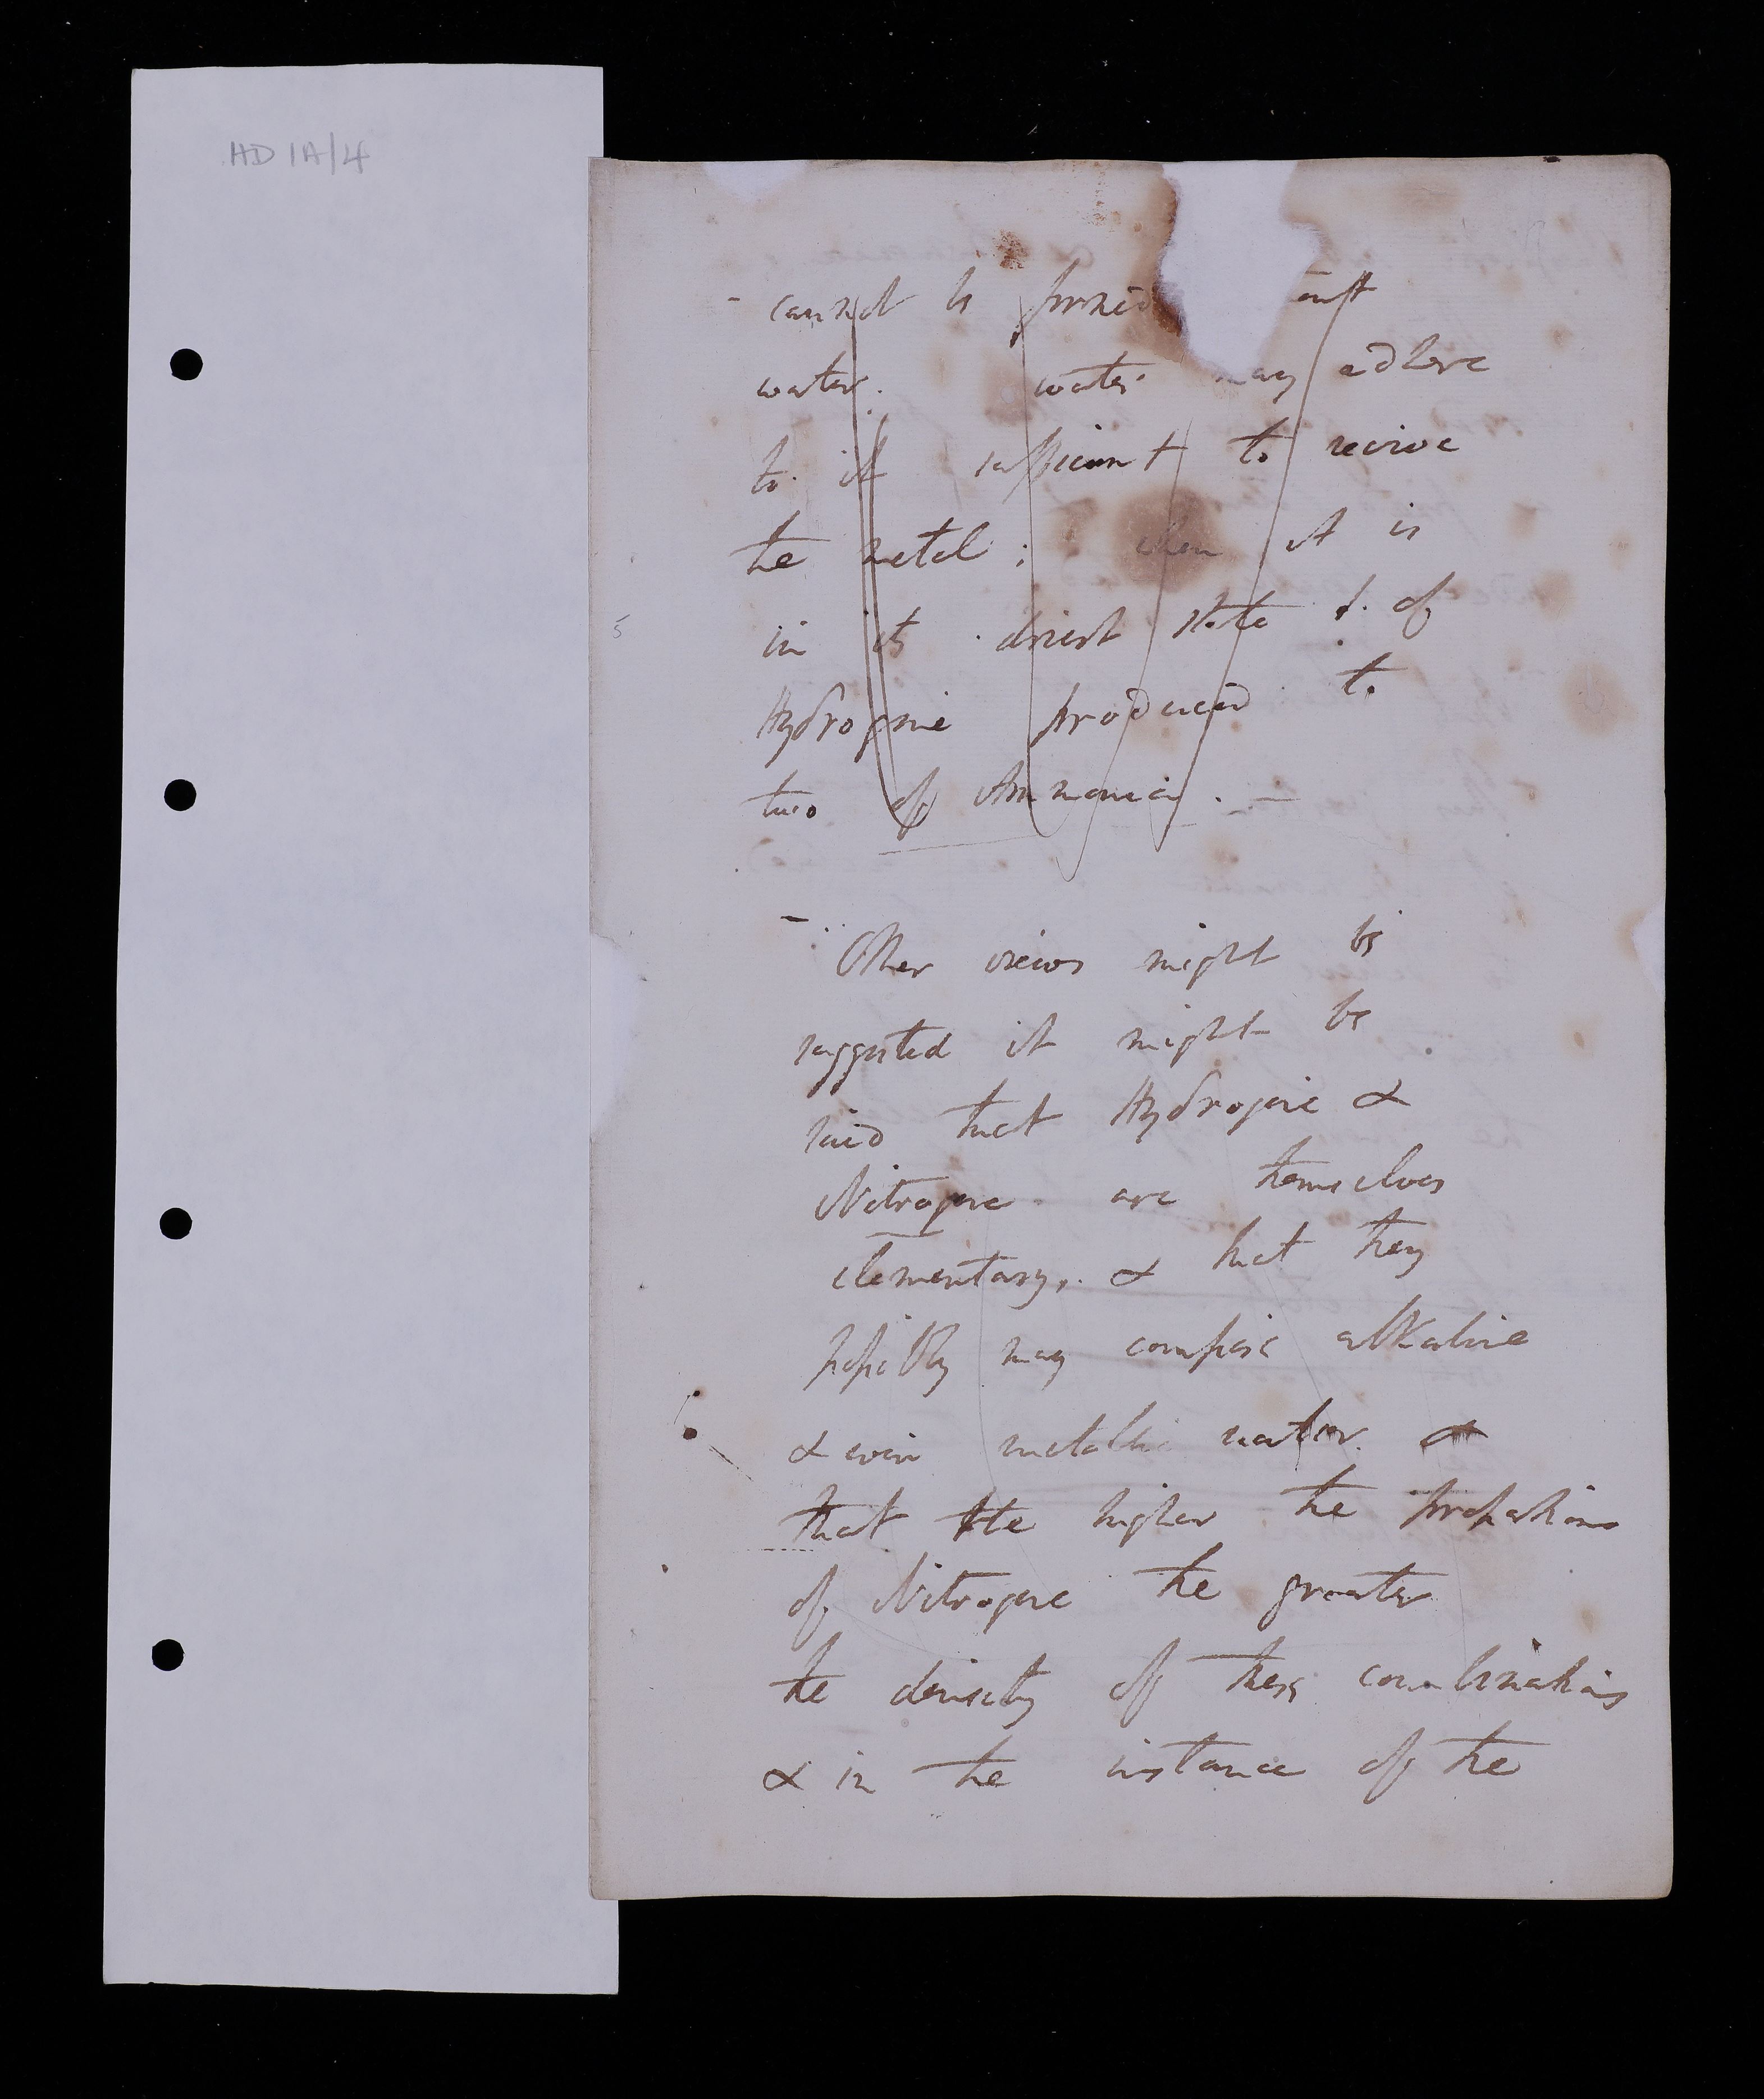 HD 1A/4
- cannot be formed
water. water may adhere
to it sufficient to revive
the metal; when it is
in its driest state 1. of
Hydrogene produced to
two of Ammonia. —
5
- Other views might be
suggested it might be
said that Hydrogene &
Nitrogene are themselves
elementary, & that they
possibly may compose alkaline
& even metallic matter.
that the higher the proportions
of Nitrogene the greater
the density of these combinations
& in the instance of the